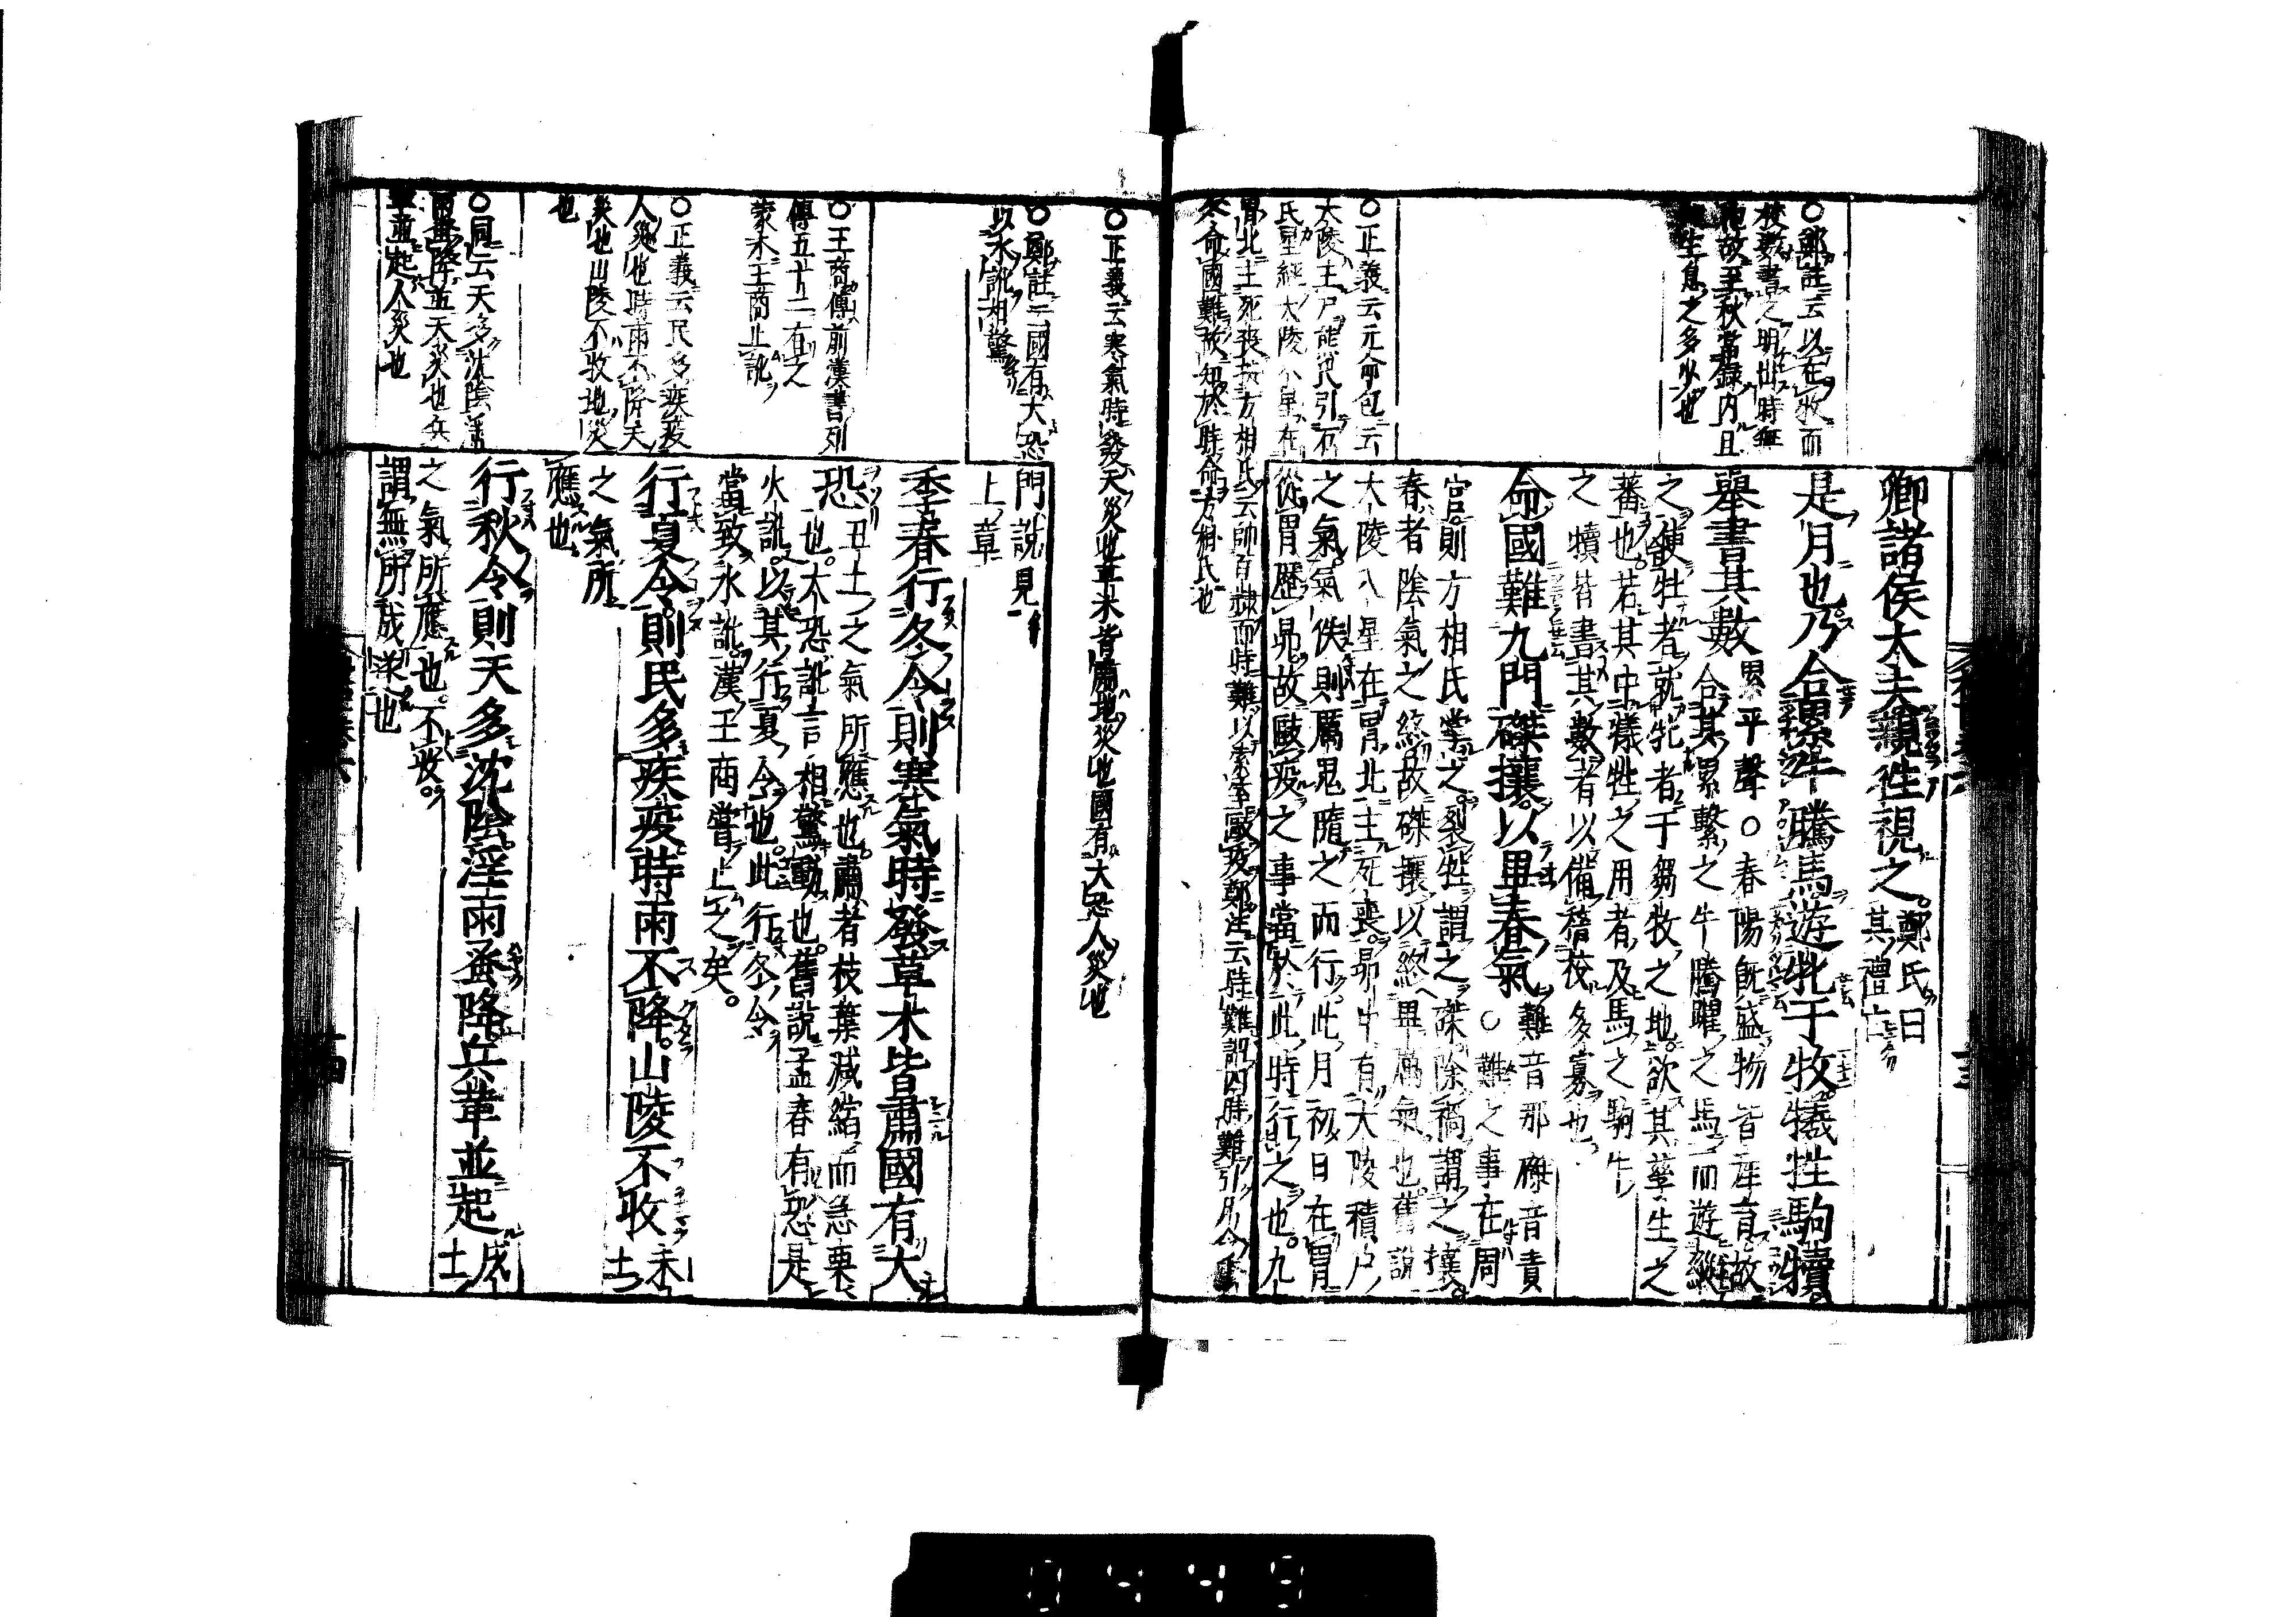 卿諸侯大夫親徃視之。鄭氏曰
其禮亡
是月也乃合累牛騰馬遊牝于牧。犧牲駒犢
舉書其數累平聲○春陽既盛物皆産育故
合其累繫之牛騰躍之馬而遊縱
之使牡者就牝者于芻牧之地欲其孳生之
蕃也。若其中犧牲之用者及馬之駒牛
之犢皆書其數者以備稽校多寡也
命國難九門磔攘以畢春氣難音那磔音責
○難之事在周
官則方相氏掌之裂牲謂之磔除禍謂之攘。
春者陰氣之終故磔攘以終畢厲氣也舊說
大陵八星在胃北主死喪昴中有大陵積尸
之氣氣佚則厲鬼隨之而行此月初日在胃
從胃歷昴故毆疫之事當於此時行之也。九
門說見
上章
季春行冬令則寒氣時發草木皆肅國有大
恐丑土之氣所應也肅者枝葉減縮而急栗
也。大恐訛言相驚動也舊說孟春有恐是
火訛以其行夏令也。此行冬令
當致水訛漢王商嘗止之矣。
行夏令則民多疾疫時雨不降。山陵不收未土
之氣所
應也
行秋令則天多沈陰淫雨蚤降。兵革並起戌土
之氣所應也。不收。
謂無所成遂也
○鄭註云以在牧而
校數書之明出時無
他故至秋當錄内且
生息之多少也
○正義云元命包云
大陵主尸熊氏引石
氏星經大陵八星在
胃北主死喪方相氏云帥百隷而時難以索室毆疫鄭注云時難四時難引月令季
冬命國難故知於時命方相氏也
○正義云寒氣時發天災也草木皆肅地災也國有大恐人災也
○鄭註云國有大恐
以水訛相驚
○王商傳前漢書列
傳五十二有之
蒙求王商止訛
○正義云民多疾疫
人災也時雨不降天
災也山陵不收地災
也
○同云天多沈陰淫
雨蚤降並天災也兵
革並起人災也
0449